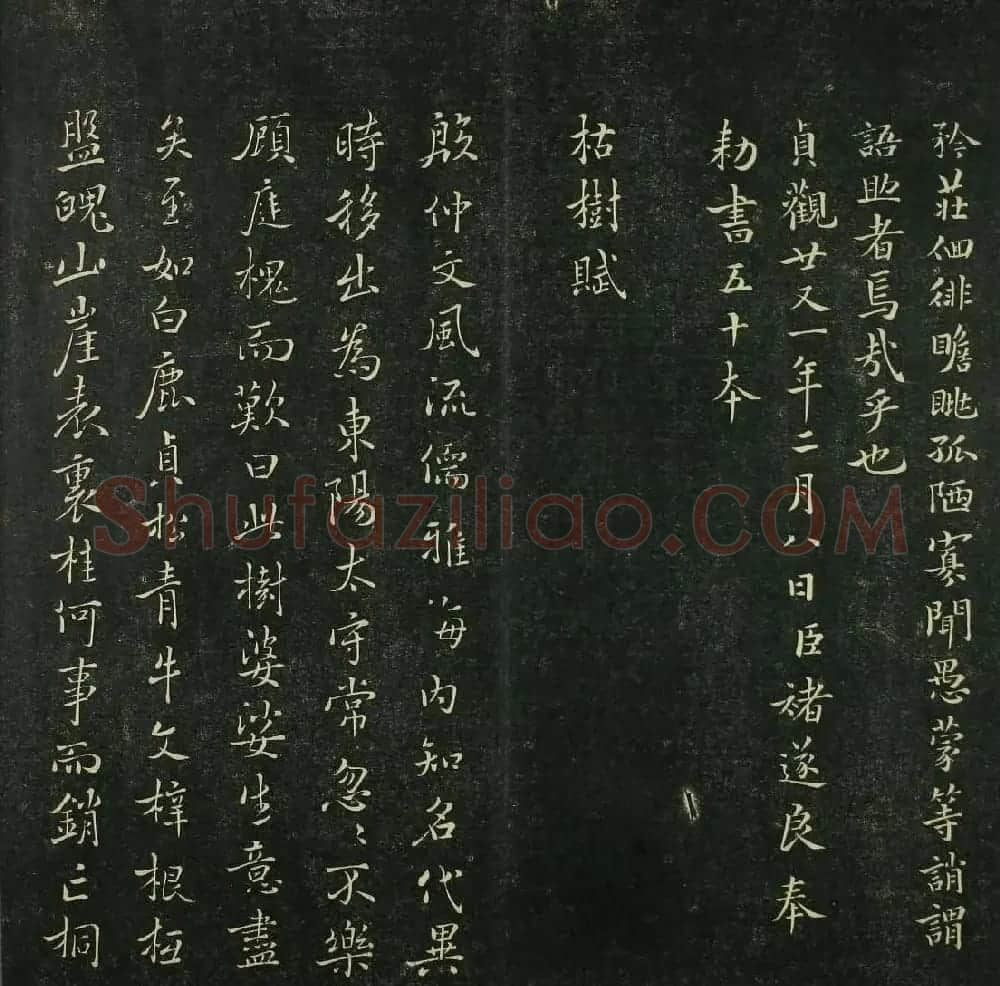 矜莊佪徘瞻眺孤陋寡聞愚蒙等誚謂
語助者焉哉乎也
貞觀廿又一年二月八日臣褚遂良奉
勑書五十本
枯樹賦
殷仲文風流儒雅海内知名代異
時移出為東陽太守常忽〻不樂
顧庭槐而歎曰此樹婆娑生意盡
矣至如白鹿貞松青牛文梓根柢
盤魄山崖表裏桂何事而銷亡桐
Shufaziliao.COM